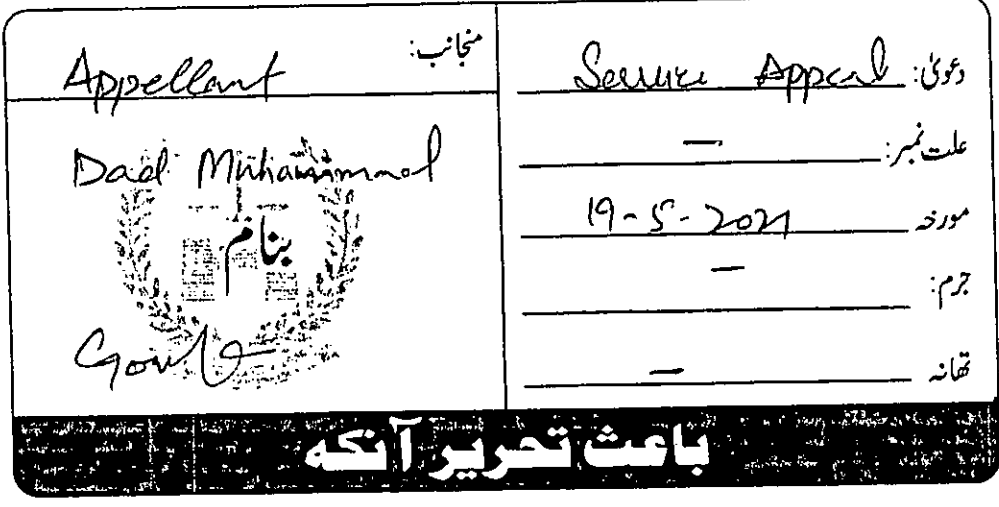 دعویٰ: Service Appeal
علت نمبر: —
مورخہ 19-5-2021
جرم: —
تھانہ —
منجانب: Appellant
Dad Muhammad
بنام
Govt
باعث تحریر آنکہ